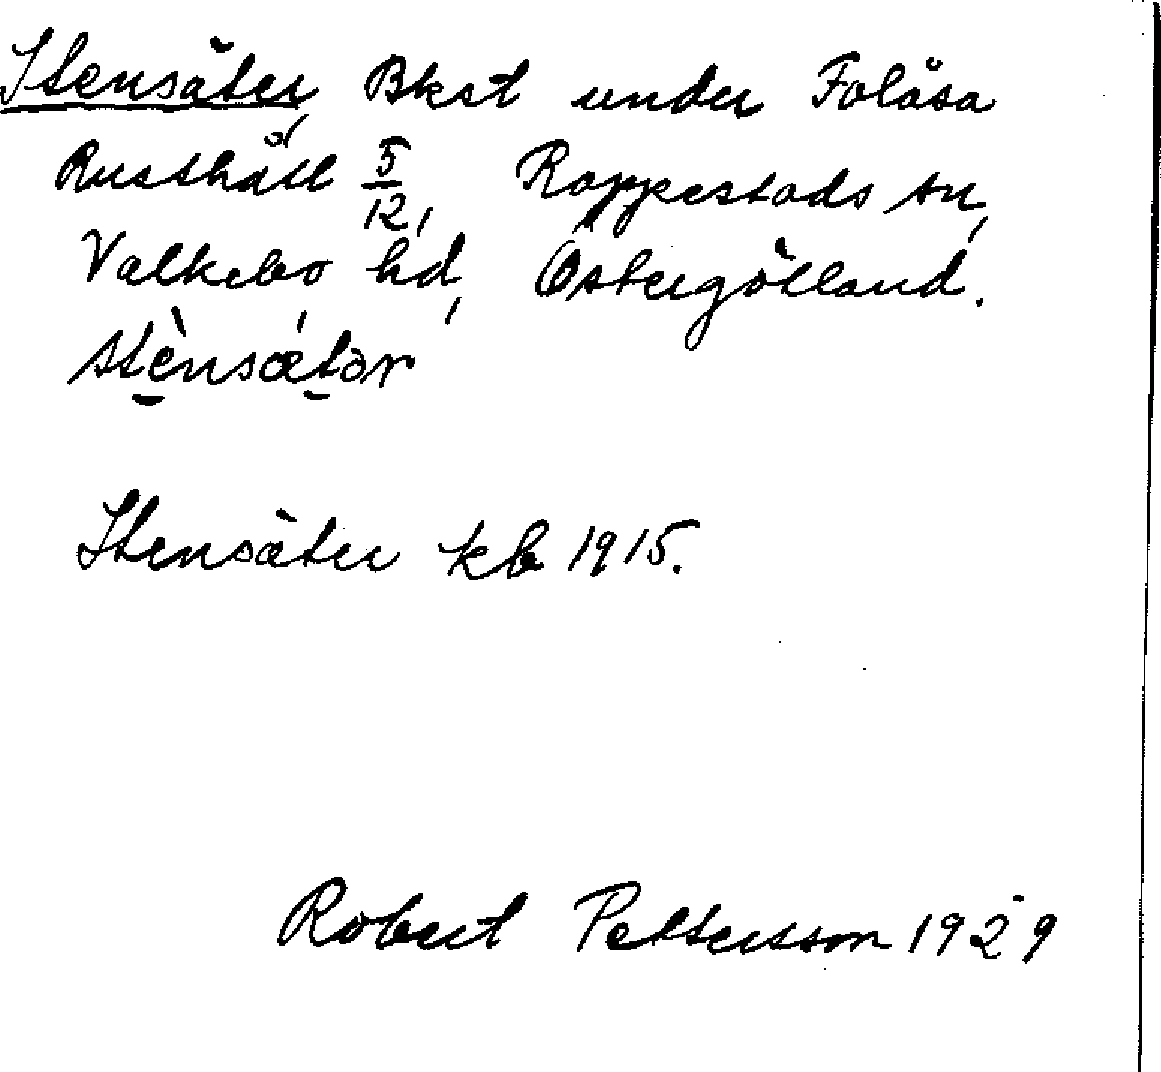 Stensäter, Bkst under Folåsa
Rusthåll 5/12, Rappestads sn,
Valkebo hd, Östergötland.
stènsætar
Stensäter kb 1915.
Robert Pettersson 1929